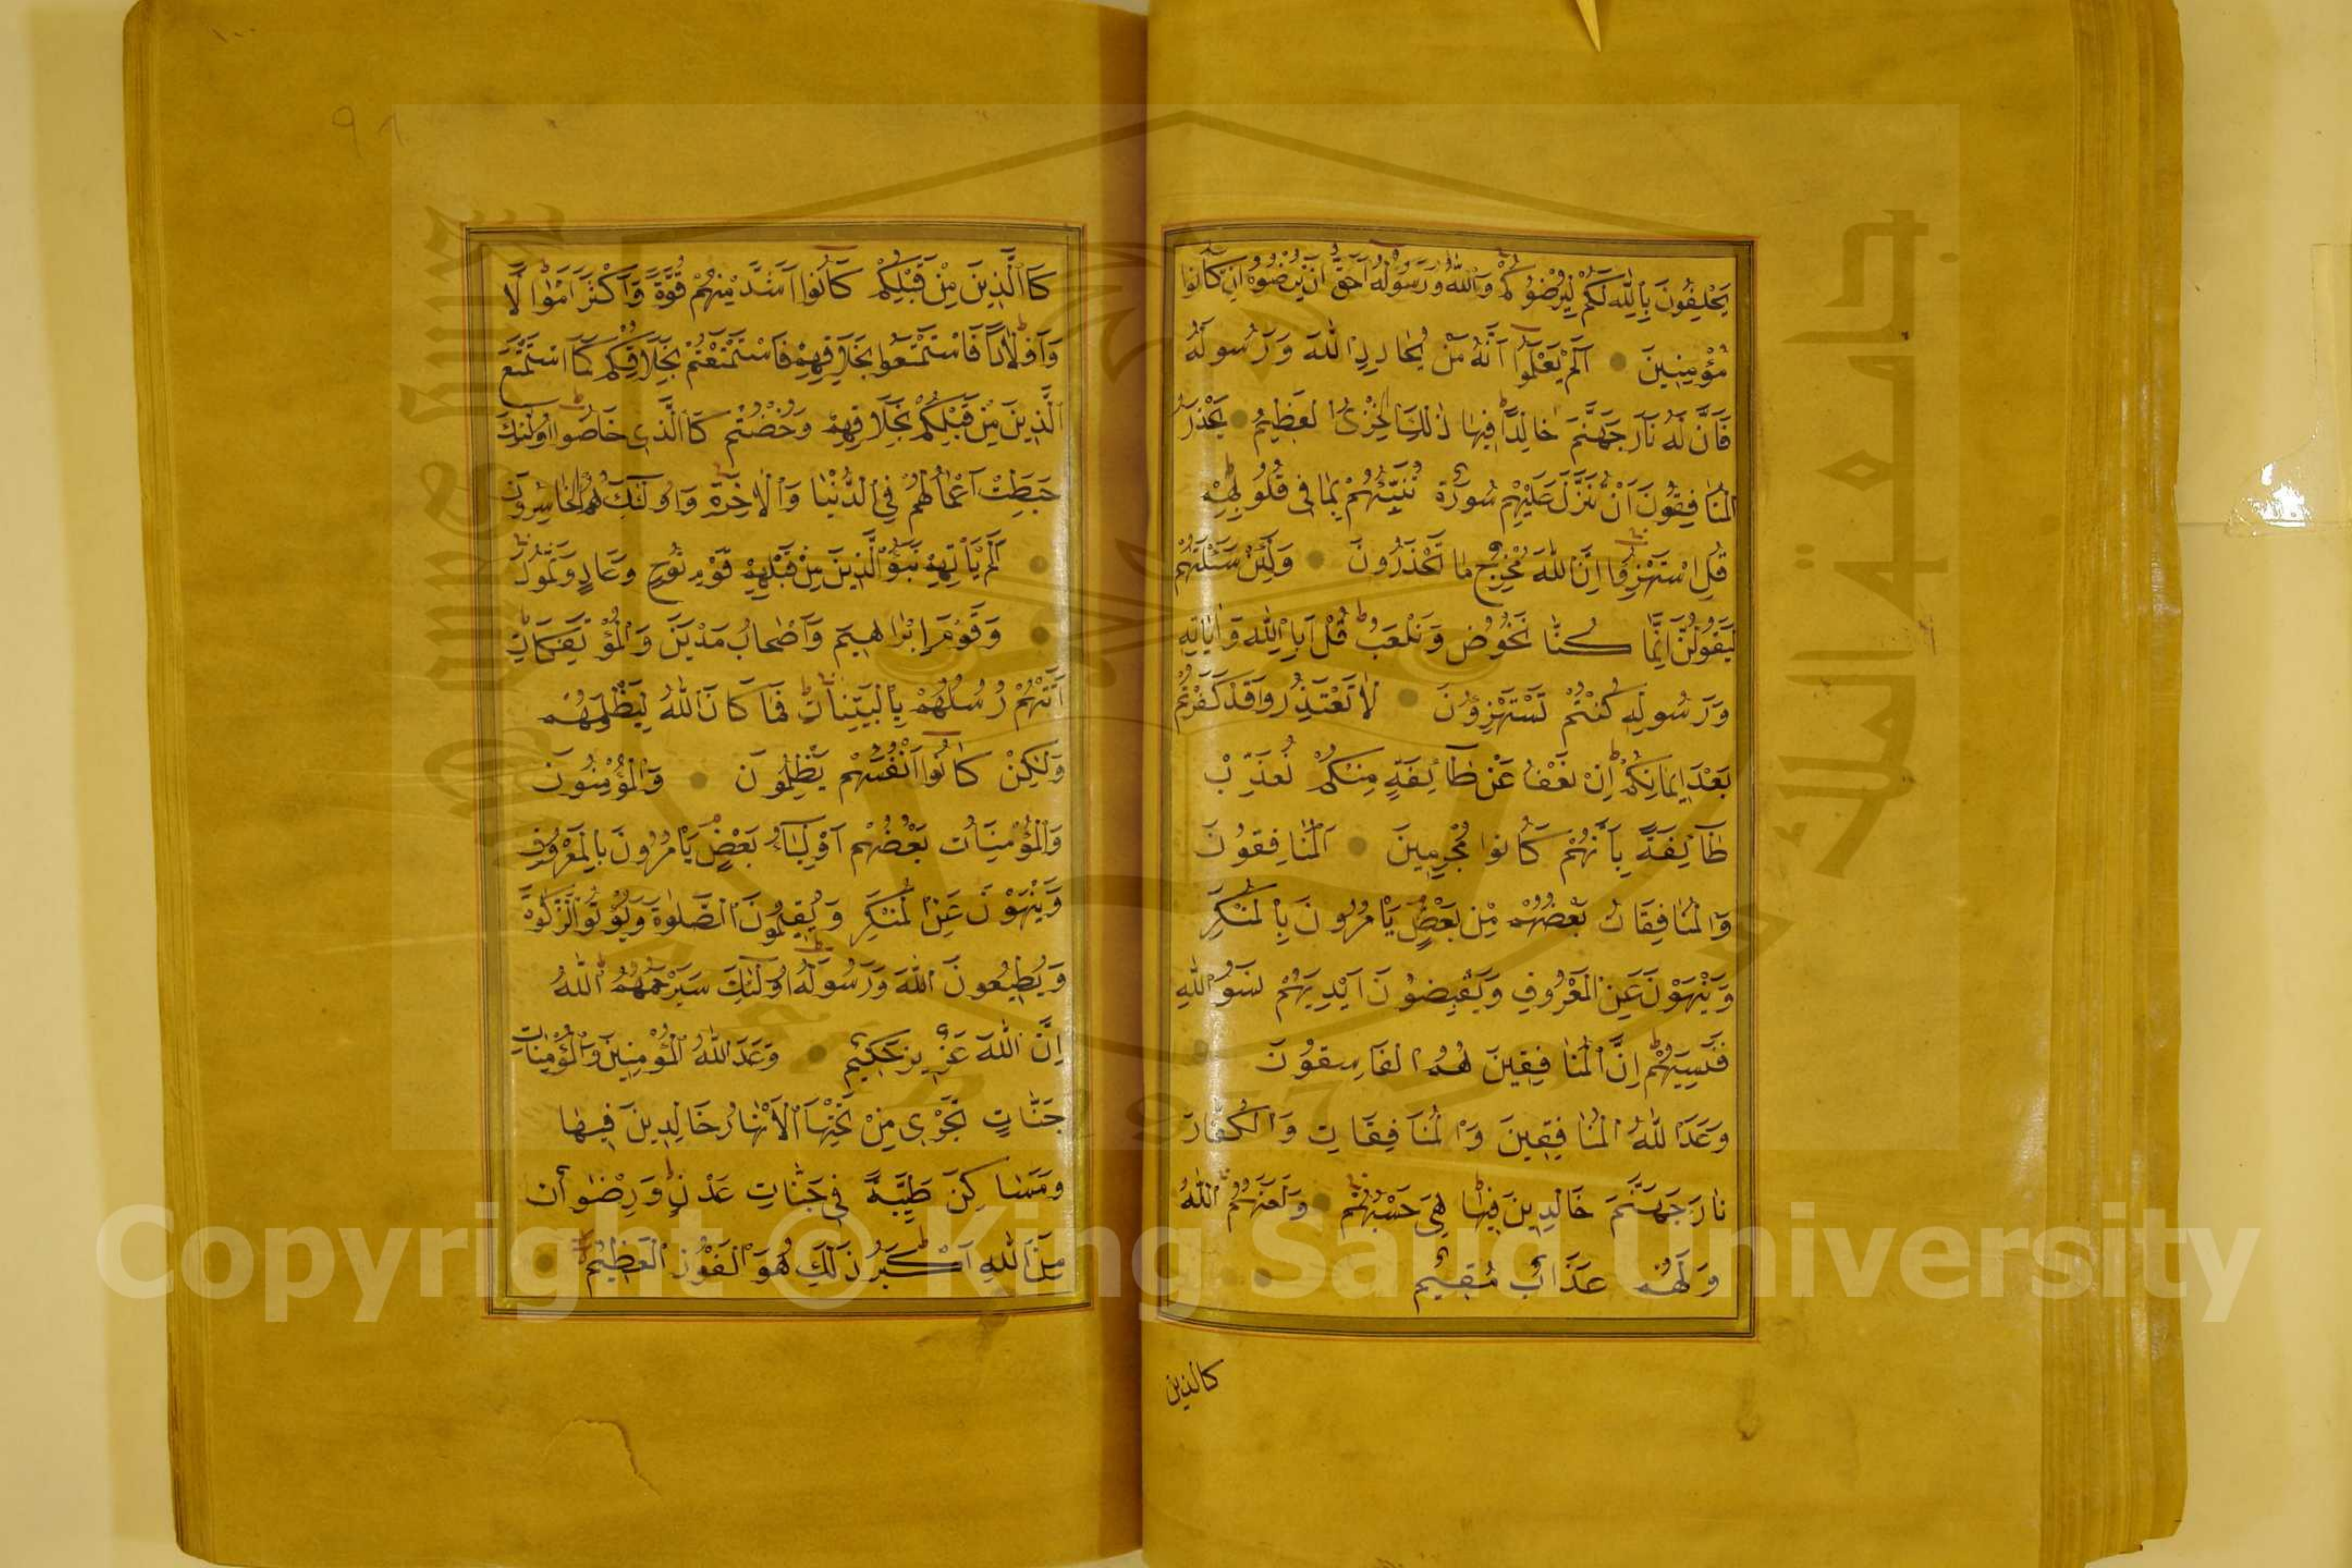 يَحْلِفُونَ بِاللّٰهِ لَكُمْ لِيُرْضُوكُمْ وَاللّٰهُ وَرَسُولُهُ اَحَقُّ اَنْ يُرْضُوهُ اِنْ كَانُوا
مُؤْمِنِينَ اَلَمْ يَعْلَمُوا اَنَّهُ مَنْ يُحَادِدِ اللّٰهَ وَرَسُولَهُ
فَاَنَّ لَهُ نَارَ جَهَنَّمَ خَالِدًا فِيهَا ذٰلِكَ الْخِزْىُ الْعَظِيمُ يَحْذَرُ
الْمُنَافِقُونَ اَنْ تُنَزَّلَ عَلَيْهِمْ سُورَةٌ تُنَبِّئُهُمْ بِمَا فِى قُلُوبِهِمْ
قُلِ اسْتَهْزِؤُا اِنَّ اللّٰهَ مُخْرِجٌ مَا تَحْذَرُونَ وَلَئِنْ سَئَلْتَهُمْ
لَيَقُولُنَّ اِنَّمَا كُنَّا نَخُوضُ وَنَلْعَبُ قُلْ اَبِاللّٰهِ وَاٰيَاتِهِ
وَرَسُولِهِ كُنْتُمْ تَسْتَهْزِؤُنَ لَا تَعْتَذِرُوا قَدْ كَفَرْتُمْ
بَعْدَ اِيمَانِكُمْ اِنْ نَعْفُ عَنْ طَآئِفَةٍ مِنْكُمْ نُعَذِّبْ
طَآئِفَةً بِاَنَّهُمْ كَانُوا مُجْرِمِينَ اَلْمُنَافِقُونَ
وَالْمُنَافِقَاتُ بَعْضُهُمْ مِنْ بَعْضٍ يَاْمُرُونَ بِالْمُنْكَرِ
وَيَنْهَوْنَ عَنِ الْمَعْرُوفِ وَيَقْبِضُونَ اَيْدِيَهُمْ نَسُوا اللّٰهَ
فَنَسِيَهُمْ اِنَّ الْمُنَافِقِينَ هُمُ الْفَاسِقُونَ
وَعَدَ اللّٰهُ الْمُنَافِقِينَ وَالْمُنَافِقَاتِ وَالْكُفَّارَ
نَارَ جَهَنَّمَ خَالِدِينَ فِيهَا هِىَ حَسْبُهُمْ وَلَعَنَهُمُ اللّٰهُ
وَلَهُمْ عَذَابٌ مُقِيمٌ
كالذين
٩٨
كَالَّذِينَ مِنْ قَبْلِكُمْ كَانُوا اَشَدَّ مِنْكُمْ قُوَّةً وَاَكْثَرَ اَمْوَالًا
وَاَوْلَادًا فَاسْتَمْتَعُوا بِخَلَاقِهِمْ فَاسْتَمْتَعْتُمْ بِخَلَاقِكُمْ كَمَا اسْتَمْتَعَ
الَّذِينَ مِنْ قَبْلِكُمْ بِخَلَاقِهِمْ وَخُضْتُمْ كَالَّذِى خَاضُوا اُولٰئِكَ
حَبِطَتْ اَعْمَالُهُمْ فِى الدُّنْيَا وَالْاٰخِرَةِ وَاُولٰئِكَ هُمُ الْخَاسِرُونَ
اَلَمْ يَاْتِهِمْ نَبَؤُا الَّذِينَ مِنْ قَبْلِهِمْ قَوْمِ نُوحٍ وَعَادٍ وَثَمُودَ
وَقَوْمِ اِبْرَاهِيمَ وَاَصْحَابِ مَدْيَنَ وَالْمُؤْتَفِكَاتِ
اَتَتْهُمْ رُسُلُهُمْ بِالْبَيِّنَاتِ فَمَا كَانَ اللّٰهُ لِيَظْلِمَهُمْ
وَلٰكِنْ كَانُوا اَنْفُسَهُمْ يَظْلِمُونَ وَالْمُؤْمِنُونَ
وَالْمُؤْمِنَاتُ بَعْضُهُمْ اَوْلِيَآءُ بَعْضٍ يَاْمُرُونَ بِالْمَعْرُوفِ
وَيَنْهَوْنَ عَنِ الْمُنْكَرِ وَيُقِيمُونَ الصَّلٰوةَ وَيُؤْتُونَ الزَّكٰوةَ
وَيُطِيعُونَ اللّٰهَ وَرَسُولَهُ اُولٰئِكَ سَيَرْحَمُهُمُ اللّٰهُ
اِنَّ اللّٰهَ عَزِيزٌ حَكِيمٌ وَعَدَ اللّٰهُ الْمُؤْمِنِينَ وَالْمُؤْمِنَاتِ
جَنَّاتٍ تَجْرِى مِنْ تَحْتِهَا الْاَنْهَارُ خَالِدِينَ فِيهَا
وَمَسَاكِنَ طَيِّبَةً فِى جَنَّاتِ عَدْنٍ وَرِضْوَانٌ
مِنَ اللّٰهِ اَكْبَرُ ذٰلِكَ هُوَ الْفَوْزُ الْعَظِيمُ
جامعة الملك سعود
Copyright © King Saud University